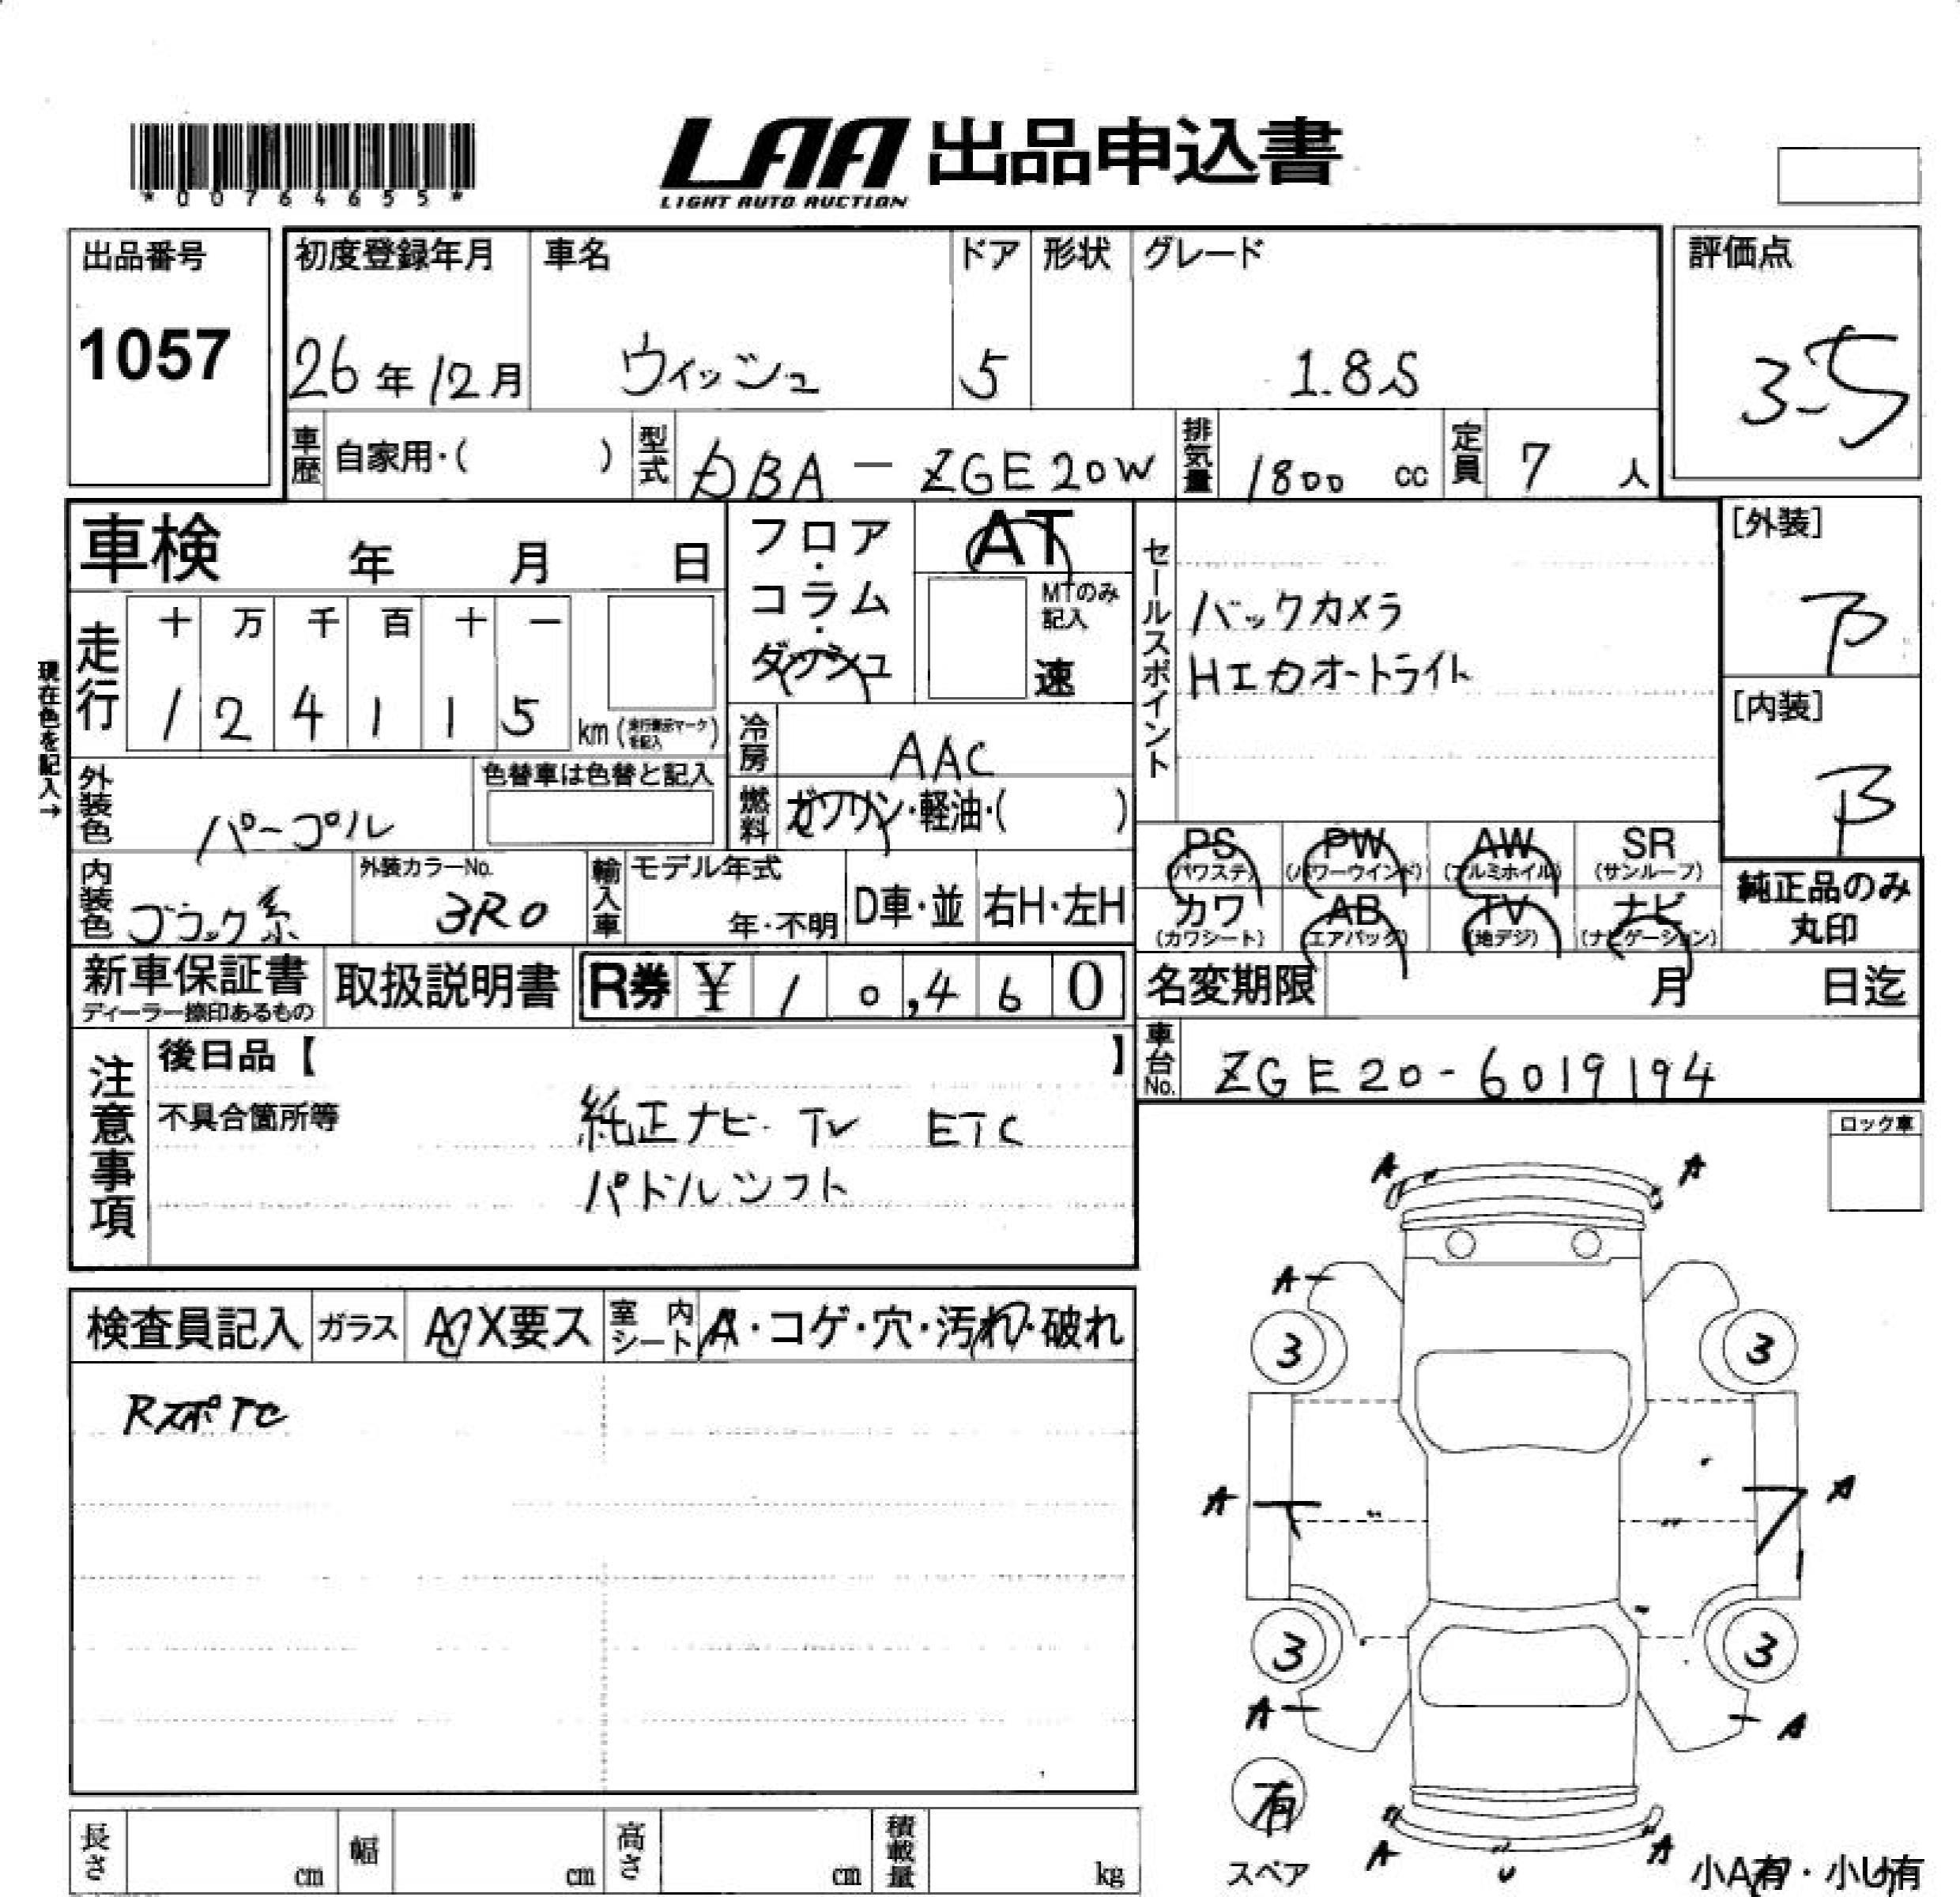 *00764655*
LAA 出品申込書
LIGHT AUTO AUCTION
出品番号
1057
初度登録年月
26年12月
車名
ウィッシュ
ドア
5
形状
グレード
1.8S
評価点
3.5
車歴 自家用・( )
型式 DBA-ZGE20W
排気量 1800 cc
定員 7 人
車検 年 月 日
現在色を記入→
走行
十 万 千 百 十 一
1 2 4 1 1 5 km
フロア・コラム・ダッシュ
AT
MTのみ記入
速
冷房 AAC
燃料 ガソリン・軽油・( )
外装色 パープル
色替車は色替と記入
内装色 ブラック系
外装カラーNo. 3R0
輸入車
モデル年式
年・不明
D車・並
右H・左H
セールスポイント
バックカメラ
HIDオートライト
[外装]
B
[内装]
B
PS (パワステ)
PW (パワーウインド)
AW (アルミホイル)
SR (サンルーフ)
カワ (カワシート)
AB (エアバッグ)
TV (地デジ)
ナビ (ナビゲーション)
純正品のみ丸印
新車保証書
ディーラー捺印あるもの
取扱説明書
R券 ¥ 10,460
名変期限 月 日迄
車台No. ZGE20-6019194
注意事項
後日品【 】
不具合箇所等
純正ナビ TV ETC
パドルシフト
ロック車
検査員記入
ガラス
A X要ス
室内シート
A・コゲ・穴・汚れ・破れ
A A
A
3 3
A A
3 3
A A
有
スペア
A A
U
小A有・小U有
長さ cm
幅 cm
高さ cm
積載量 kg